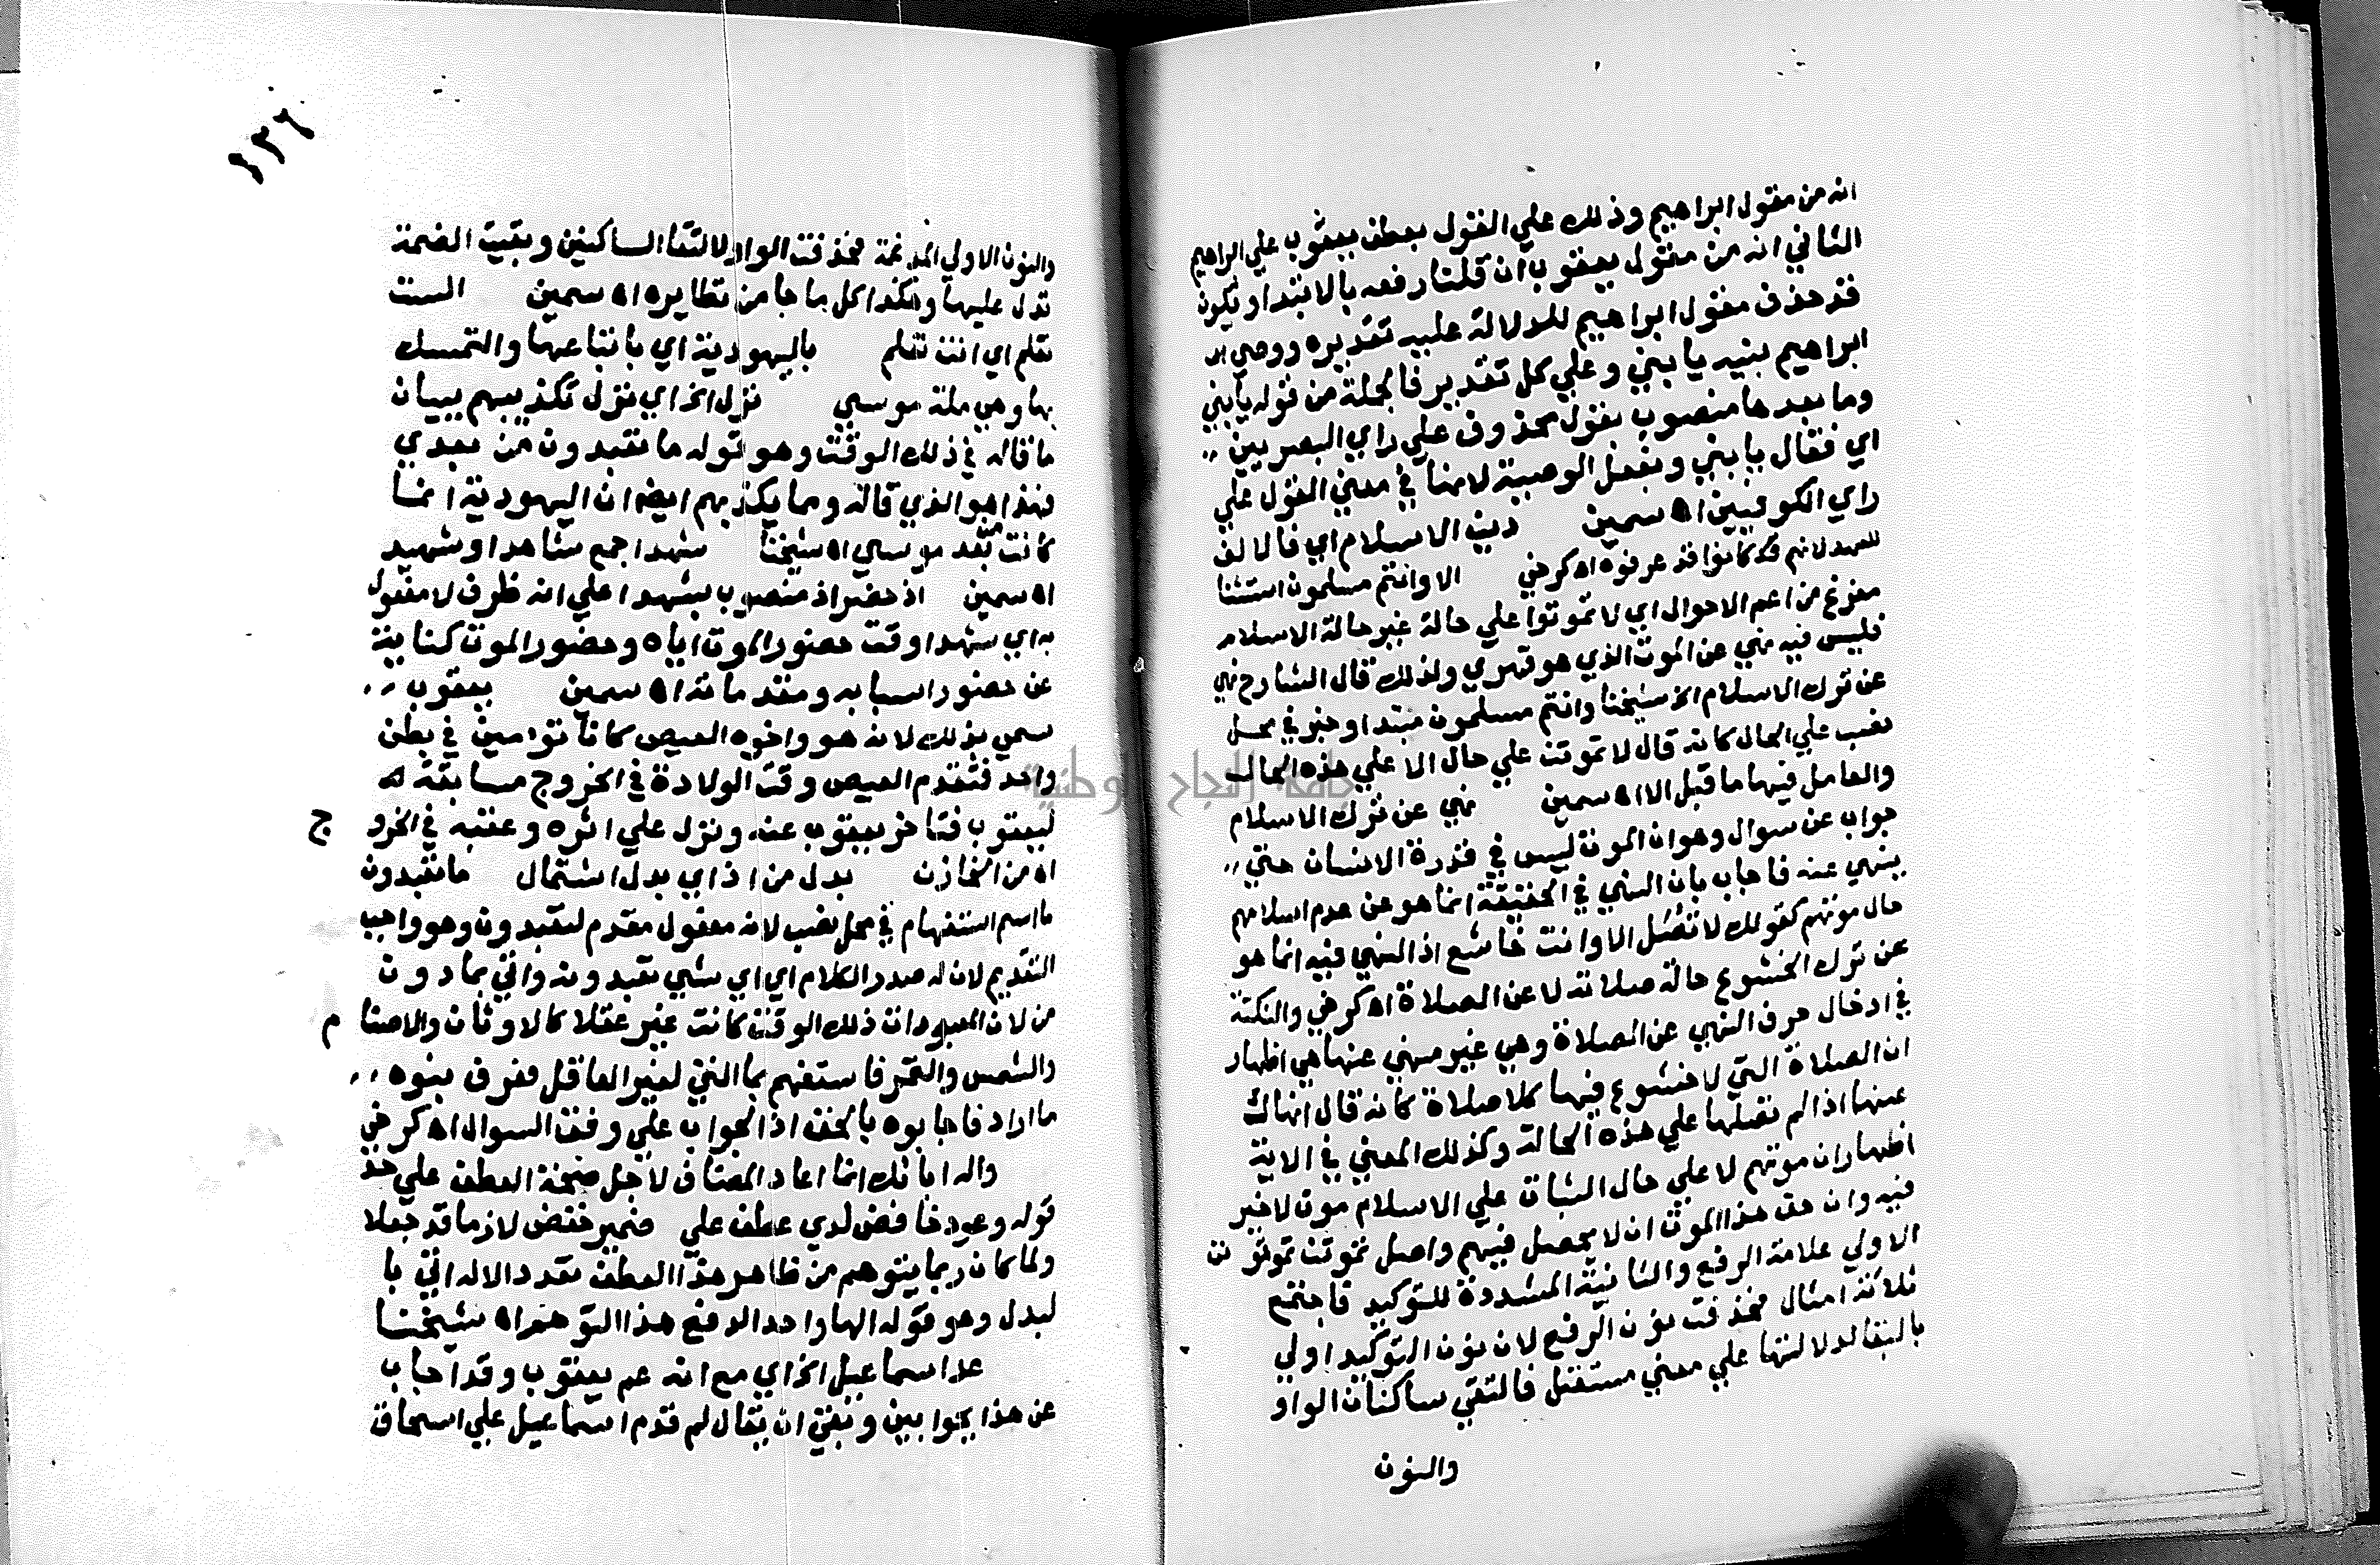 انه من مقول ابراهيم وذلك علي القول بعطف يعقوب علي ابراهيم
الثاني انه من مقول يعقوب ان قلنا رفعه بالابتدا ويكون
قد حذف مقول ابراهيم للدلالة عليه تقديره ووصي بها
ابراهيم بنيه يا بني وعلي كل تقدير فالجملة من قوله يابني
وما بعدها منصوب بقول محذوف علي راي البصريين
اي فقال يابني وبفعل الوصية لانها في معني القول علي
راي الكوفيين اه سمين دين الاسلام اي فالالف
للعهد لانهم قد كانوا قد عرفوه اه كرخي الا وانتم مسلمون استثنا
مفرغ من اعم الاحوال اي لا تموتوا علي حالة غير حالة الاسلام
فليس فيه نهي عن الموت الذي هو قهري ولذلك قال الشارح نهي
عن ترك الاسلام الخ شيخنا وانتم مسلمون مبتدا وخبر في محل
نصب علي الحال كانه قال لا تموتن علي حال الا علي هذه الحال
والعامل فيها ما قبل الا اه سمين نهي عن ترك الاسلام
جواب عن سوال وهو ان الموت ليس في قدرة الانسان حتي
ينهي عنه فاجاب بان النهي في الحقيقة انما هو عن عدم اسلامهم
حال موتهم كقولك لا تصل الا وانت خاشع اذ النهي فيه انما هو
عن ترك الخشوع حالة صلاته لا عن الصلاة اه كرخي والنكتة
في ادخال حرف النهي عن الصلاة وهي غير منهي عنها هي اظهار
ان الصلاة التي لا خشوع فيها كلا صلاة كانه قال انهاك
عنها اذا لم تصلها علي هذه الحالة وكذلك المعني في الاية
اظهار ان موتهم لا علي حال الثبات علي الاسلام موت لا خير
فيه وان حق هذا الموت ان لا يحصل فيهم واصل تموتن تموتونن
الاولي علامة الرفع والثانية المشددة للتوكيد فاجتمع
ثلاثة امثال فحذفت نون الرفع لان نون التوكيد اولي
بالبقا لدلالتها علي معني مستقل فالتقي ساكنان الواو
والنون
١٣٦
والنون الاولي المدغمة فحذفت الواو لالتقا الساكنين وبقيت الضمة
تدل عليها وهكذا كل ما جا من نظايره اه سمين الست
تعلم اي انت تعلم باليهودية اي باتباعها والتمسك
بها وهي ملة موسي نزل الخ اي نزل تكذيبهم ببيان
ما قاله في ذلك الوقت وهو قوله ما تعبدون من بعدي
فهذا هو الذي قاله ومما يكذبهم ايضا ان اليهودية انما
كانت بعد موسي اه شيخنا شهدا جمع شاهد او شهيد
اه سمين اذ حضر اذ منصوب بشهدا علي انه ظرف لا مفعول
به اي شهدا وقت حضور الموت اياه وحضور الموت كناية
عن حضور اسبابه ومقدماته اه سمين يعقوب
سمي بذلك لانه هو واخوه العيص كانا توءمين في بطن
واحد فتقدم العيص وقت الولادة في الخروج مسابقة له
ليعقوب فتاخر يعقوب عنه ونزل علي اثره وعقبه في الخروج
اه من الخازن بدل من اذ اي بدل اشتمال ما تعبدون
ما اسم استفهام في محل نصب لانه مفعول مقدم لتعبدون وهو واجب
التقديم لان له صدر الكلام اي اي شي تعبدونه واتي بما دون
من لان المعبودات ذلك الوقت كانت غير عقلا كالاوثان والاصنام
والشمس والقمر فاستفهم بما التي لغير العاقل فعرف بنوه
ما اراد فاجابوه بالحق اذ الجواب علي وفق السوال اه كرخي
واله ابائك انما اعاد المضاف لاجل صحة العطف علي حد
قوله وعود خافض لدي عطف علي ضمير خفض لازما قد جعلا
ولما كان ربما يتوهم من ظاهر هذا العطف تعدد الاله اتي با
لبدل وهو قوله الها واحدا لدفع هذا التوهم اه شيخنا
عد اسماعيل الخ اي مع انه عم يعقوب وقد اجاب
عن هذا بجوابين وبقي ان يقال لم قدم اسماعيل علي اسحاق